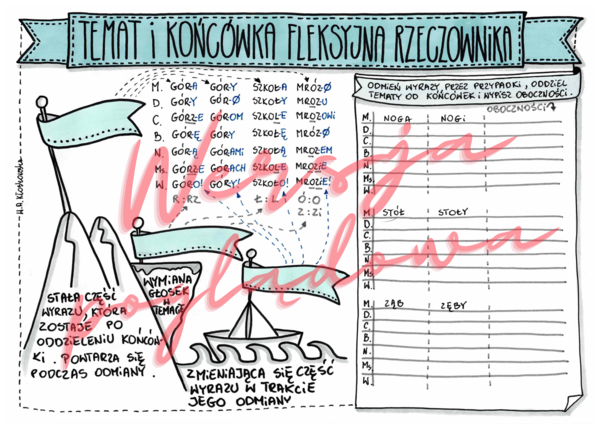 TEMAT i KOŃCÓWKA FLEKSYJNA RZECZOWNIKA
M. GÓRA GÓRY SZKOŁA MRÓZØ
D. GÓRY GÓRØ SZKOŁY MROZU
C. GÓRZE GÓROM SZKOLE MROZOWI
B. GÓRĘ GÓRY SZKOŁĘ MRÓZØ
N. GÓRĄ GÓRAMI SZKOŁĄ MROZEM
Ms. GÓRZE GÓRACH SZKOLE MROZIE
W. GÓRO! GÓRY! SZKOŁO! MROZIE!
R:RZ Ł:L Ó:O
Z:ZI
STAŁA CZĘŚĆ
WYRAZU, KTÓRA
ZOSTAJE PO
ODDZIELENIU KOŃCÓW-
KI. POWTARZA SIĘ
PODCZAS ODMIANY.
WYMIANA
GŁOSEK
W
TEMACIE
ZMIENIAJĄCA SIĘ CZĘŚĆ
WYRAZU W TRAKCIE
JEGO ODMIANY
ODMIEŃ WYRAZY PRZEZ PRZYPADKI, ODDZIEL
TEMATY OD KOŃCÓWEK I WYPISZ OBOCZNOŚCI.
OBOCZNOŚCI
M. NOGA NOGI
D.
C.
B.
N.
Ms.
W.
M. STÓŁ STOŁY
D.
C.
B.
N.
Ms.
W.
M. ZĄB ZĘBY
D.
C.
B.
N.
Ms.
W.
Wersja
poglądowa